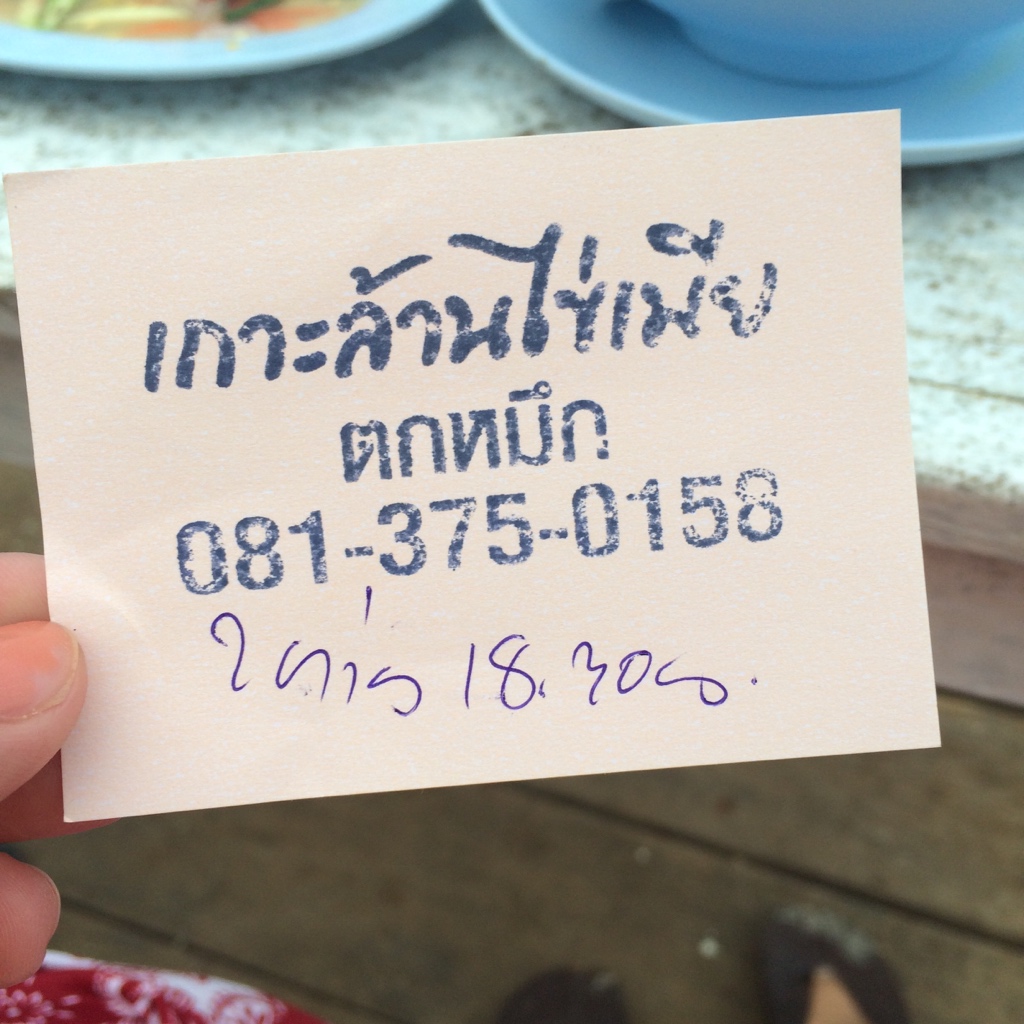 เกาะล้านไข่เมีย
ตกหมึก
081-375-0158
18.30น.